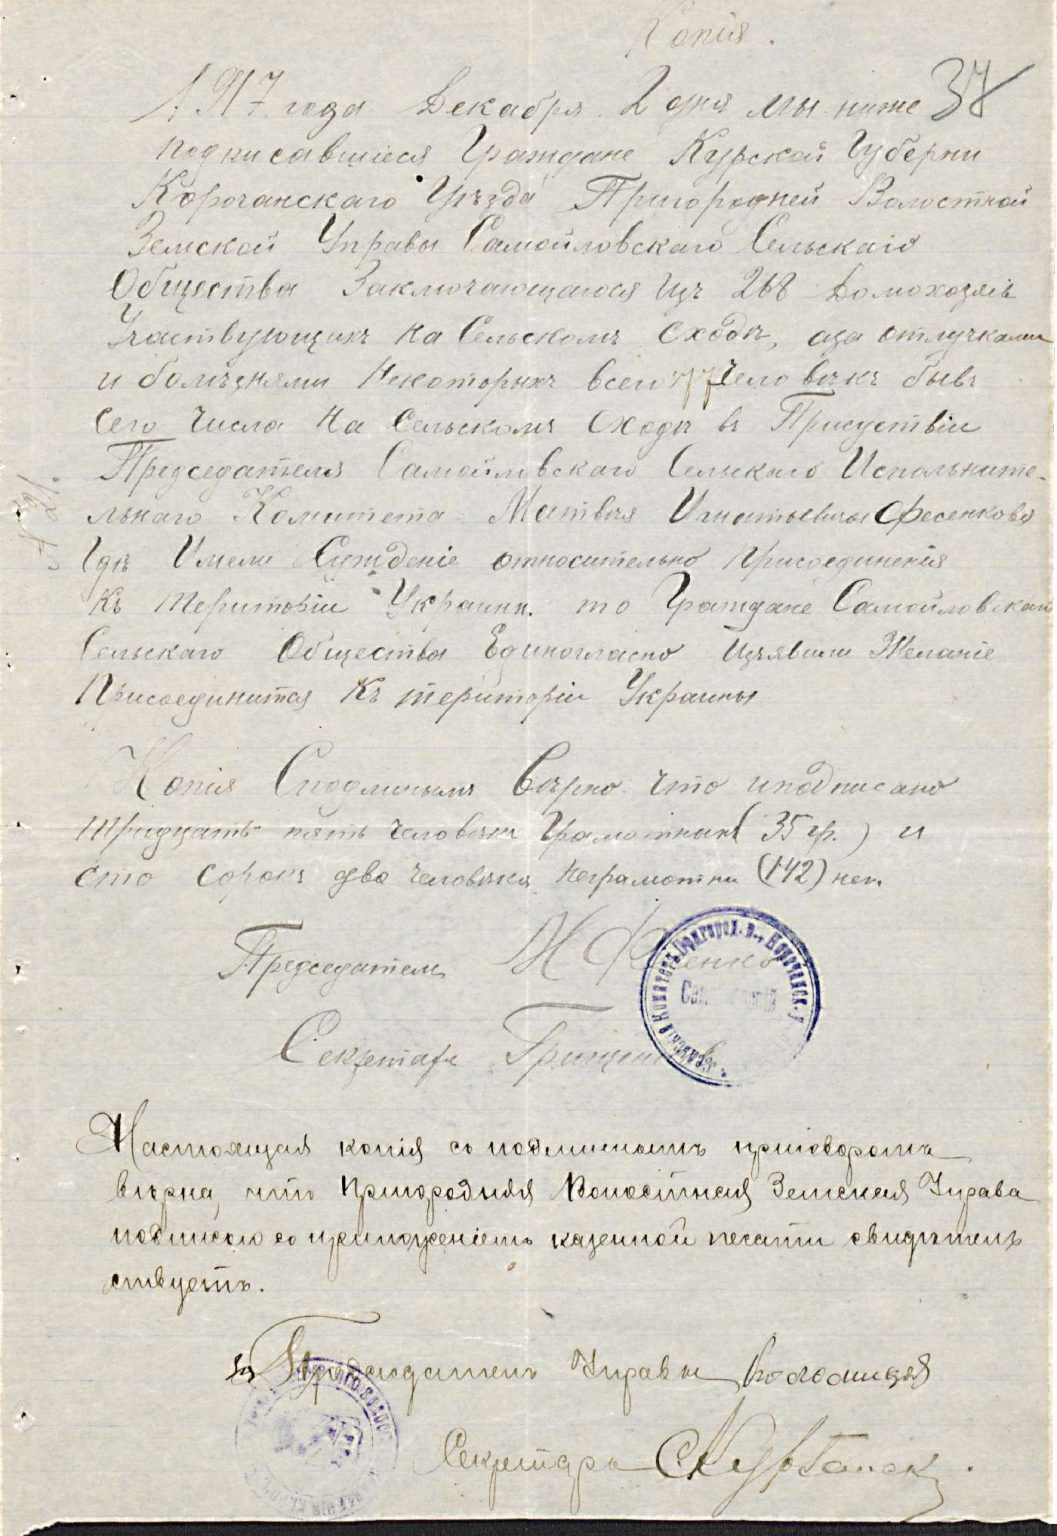 Копія.
37
1917 года Декабря 2 дня мы ниже
подписавшіеся Граждане Курской Губерни
Корочанскаго Уѣзда Пригородней Волостной
Земской Управы Самойловскаго Сельскаго
Общества Заключающагося Изъ 268 Домохозяевъ
Участвующихъ на Сельскомъ Сходѣ, аза отлучками
и болѣзнями Некоторыхъ всего 177 Человѣкъ бывъ
Сего Числа На Сельскомъ Сходѣ въ Присуствіи
Председателя Самойловскаго Сельскаго Исполните-
льнаго Комитета Матвѣя Игнатьевича Фесенкова
Гдѣ Имели Сужденіе относительно Присоединенія
Къ Територіи Украины. то Граждане Самойловскаго
Сельскаго Общества Единогласно Изъявили Желаніе
Присоединится Къ територіи Украины
Копія Сподлинымъ Вѣрно Что иподписано
тридцать пять Человѣкъ Грамотных (35 гр.) и
сто сорокъ два человѣка Неграмотни (142) нег.
Председатель М Фесенко
Секретарь
Сельскій Комитетъ Пригород. в., Корочанск. у
Настоящая копія съ подлиннымъ приговоромъ
вѣрна, что Пригородняя Волостная Земская Управа
подписью со приложеніемъ казенной печати свидѣтель
ствуетъ.
за Председатель Управы
Секретарь